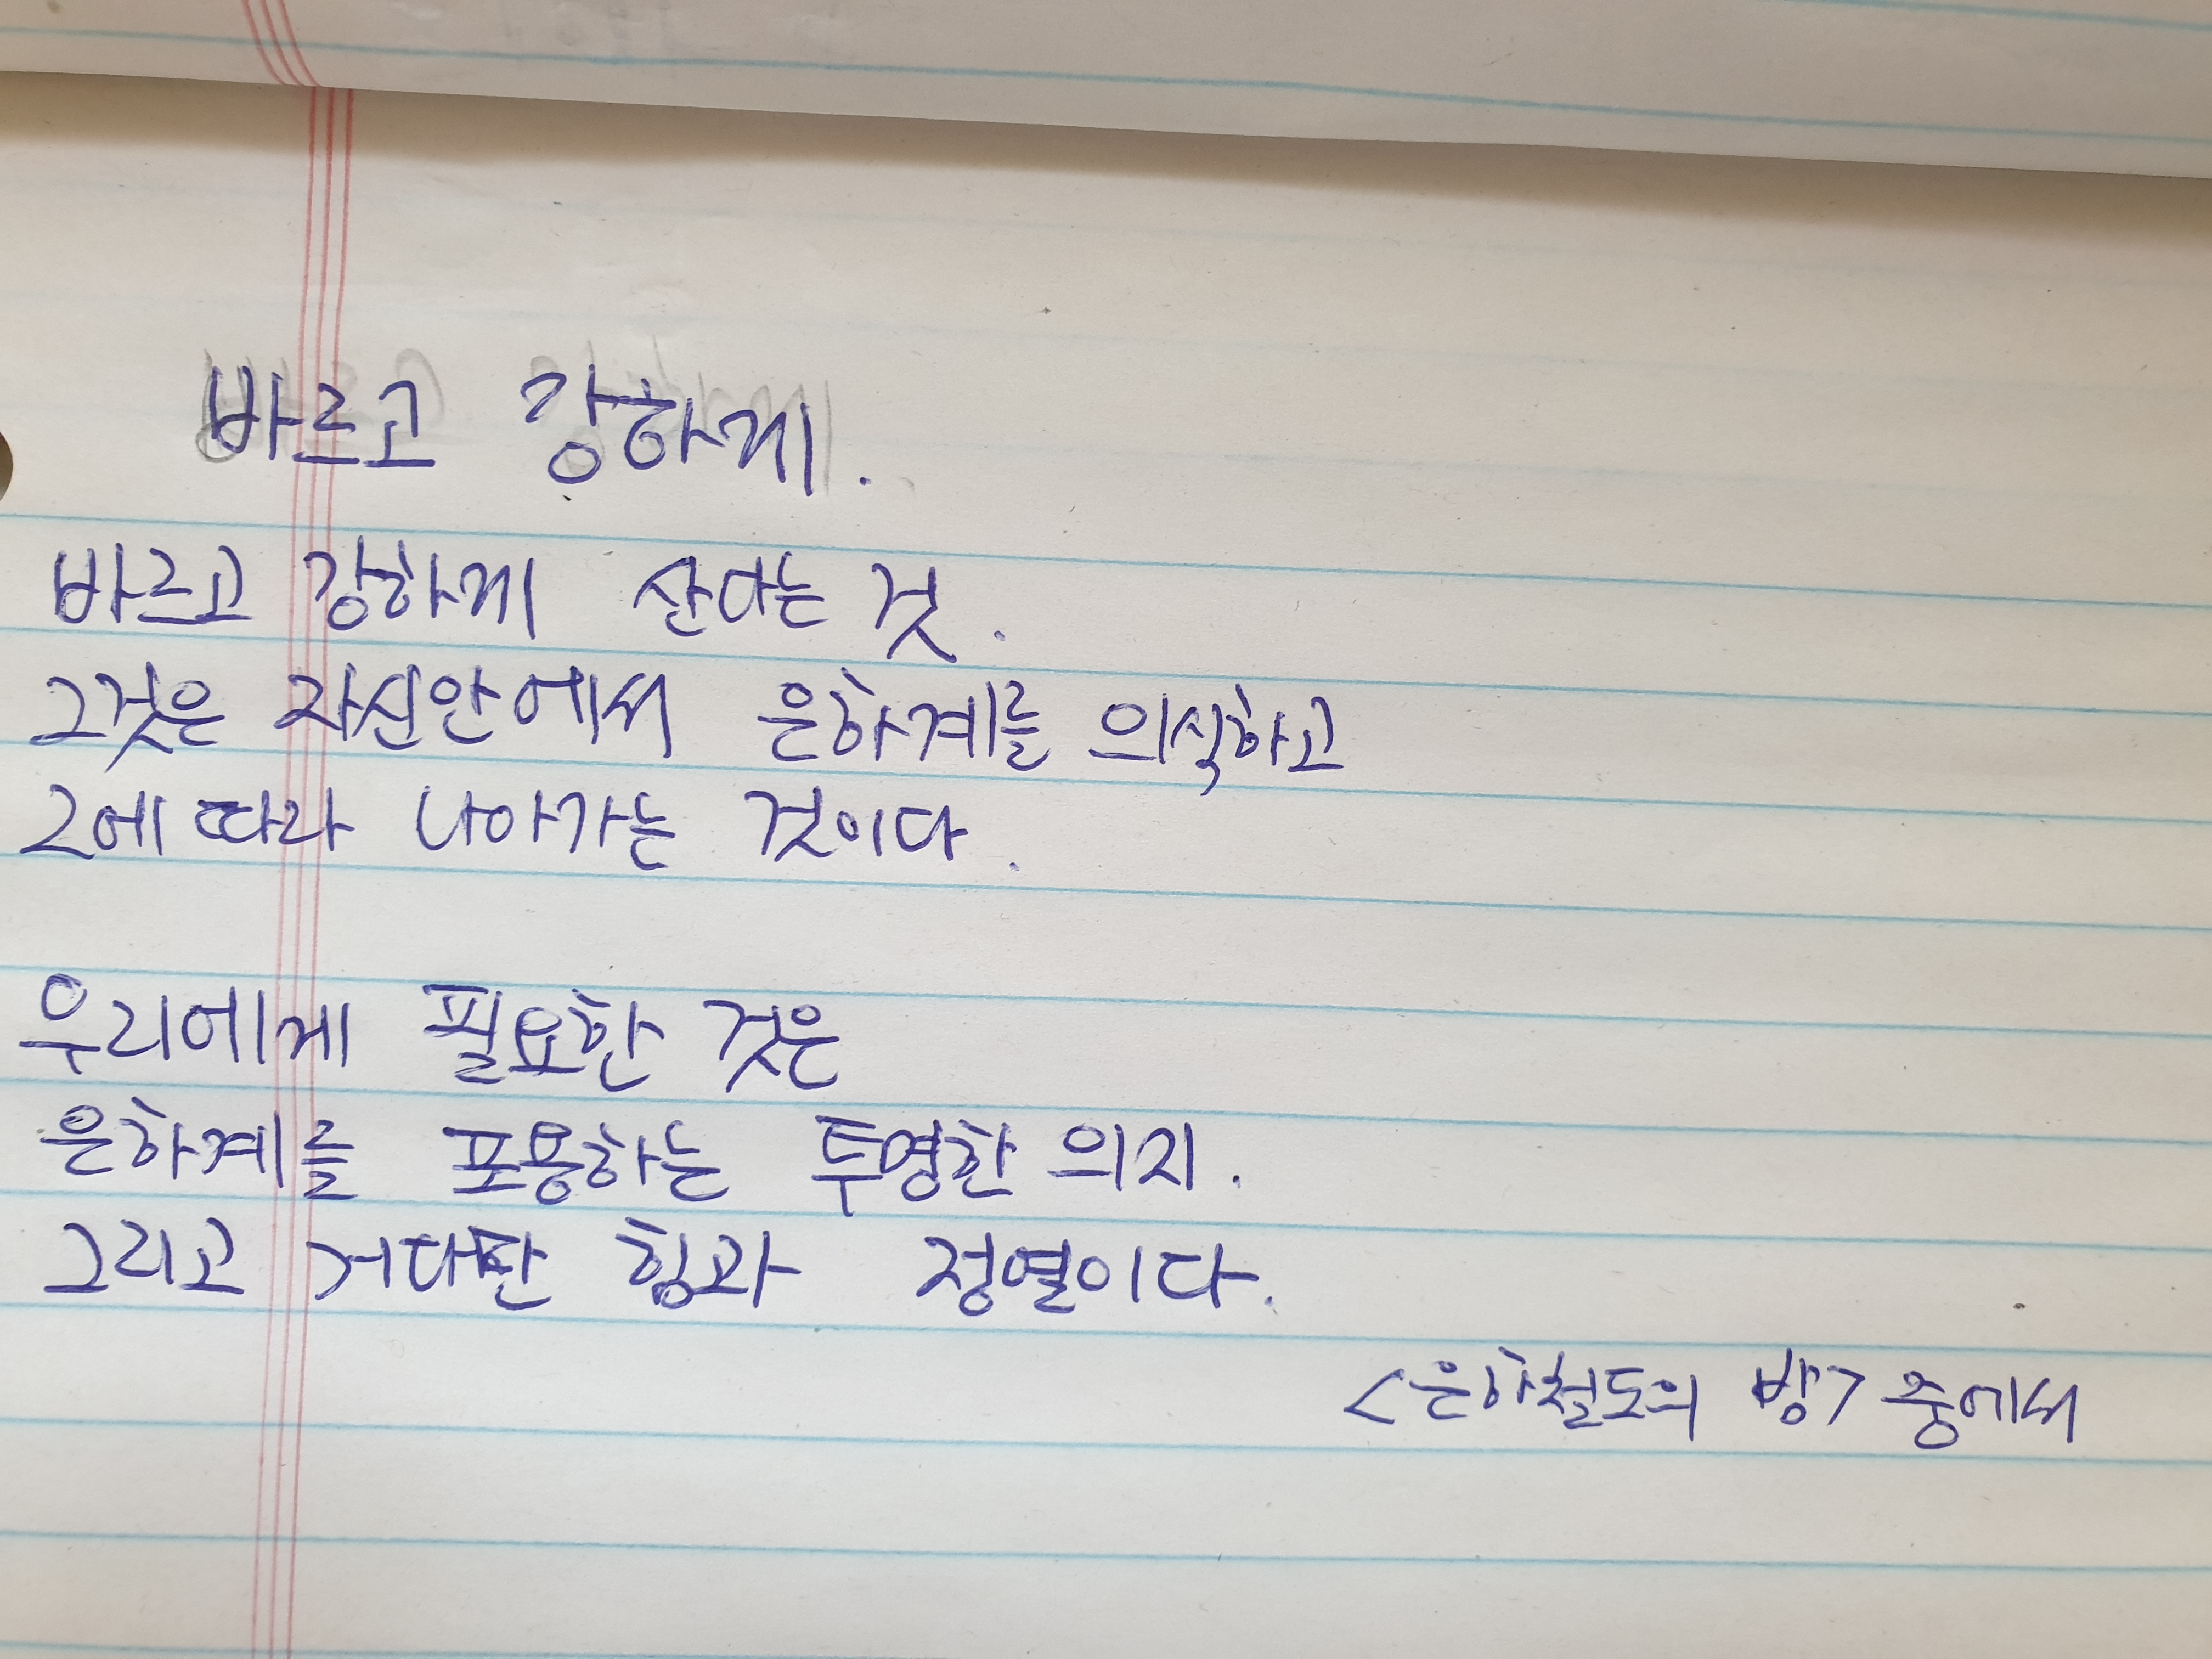 바르고 강하게.
바르고 강하게 산다는 것.
그것은 자신안에서 은하계를 의식하고
그에 따라 나아가는 것이다.
우리에게 필요한 것은
은하계를 포용하는 투명한 의지.
그리고 거대한 힘과 정열이다.
<은하철도의 밤> 중에서